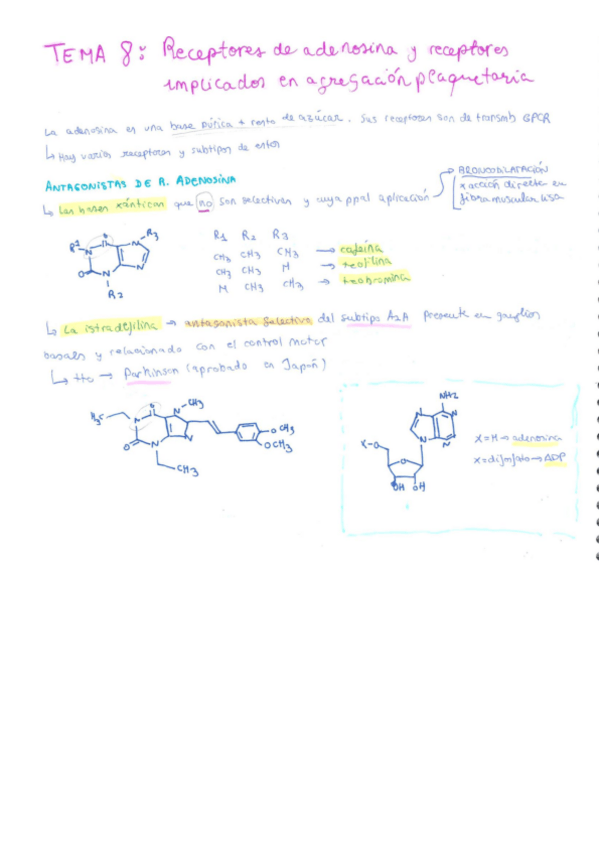 TEMA 8: Receptores de adenosina y receptores
implicados en agregación plaquetaria
La adenosina es una base púrica + resto de azúcar. Sus receptores son de transmb GPCR
↳ Hay varios receptores y subtipos de estos
ANTAGONISTAS DE R. ADENOSINA
↳ Las bases xánticas que no son selectivas y cuya ppal aplicación
→ BRONCODILATACIÓN
x acción directa en
fibra muscular lisa
R1 R2 R3
CH3 CH3 CH3 → cafeína
CH3 CH3 H → teofilina
H CH3 CH3 → teobromina
R1 N O N R3
O N N
R2
↳ La istradefilina → antagonista selectivo del subtipo A2A presente en ganglios
basales y relacionado con el control motor
↳ tto → Parkinson (aprobado en Japón)
H3C O N CH3
N
O N N
OCH3
OCH3
CH3
NH2
N N
N N
X-O
O
OH OH
X=H → adenosina
X=difosfato → ADP